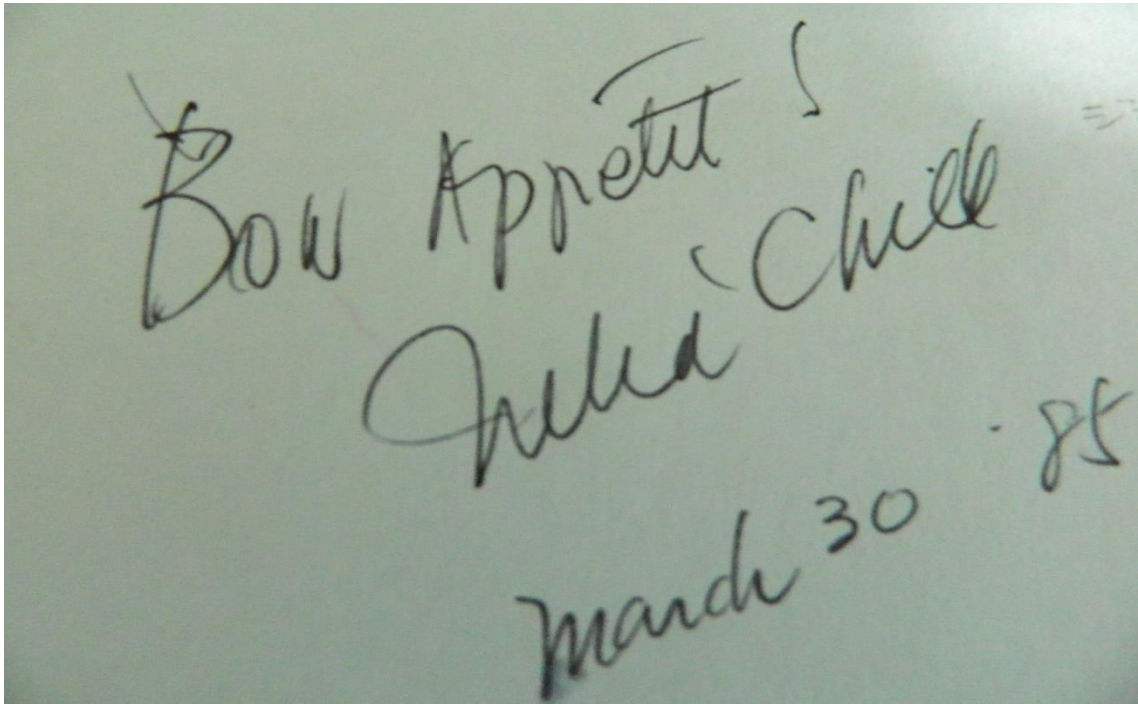 Bon Appétit!
Julia Child
March 30 - 85